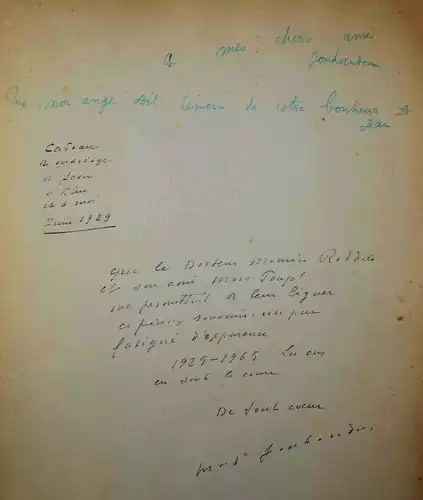 à mes chers amis
Jouhandeau
Que mon ange soit témoin de votre bonheur
Jean
Cadeau
de mariage
de Jean
à Élise
et à moi
Juin 1929
que le Docteur Maurice
et son ami Marc
me permettent de leur léguer
ce précieux souvenir, un peu
fatigué d'apparence
1929-1965 Les ans
en sont la cause
De tout coeur
Marcel Jouhandeau.